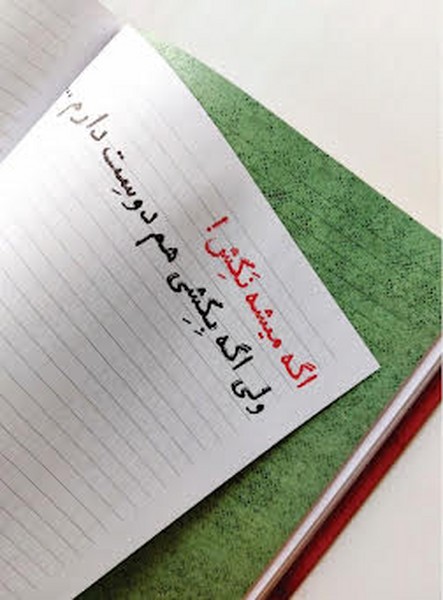 اگه میشه نَکُشِ !
ولی اگه بِکُشِی هم دوسِت دارم"